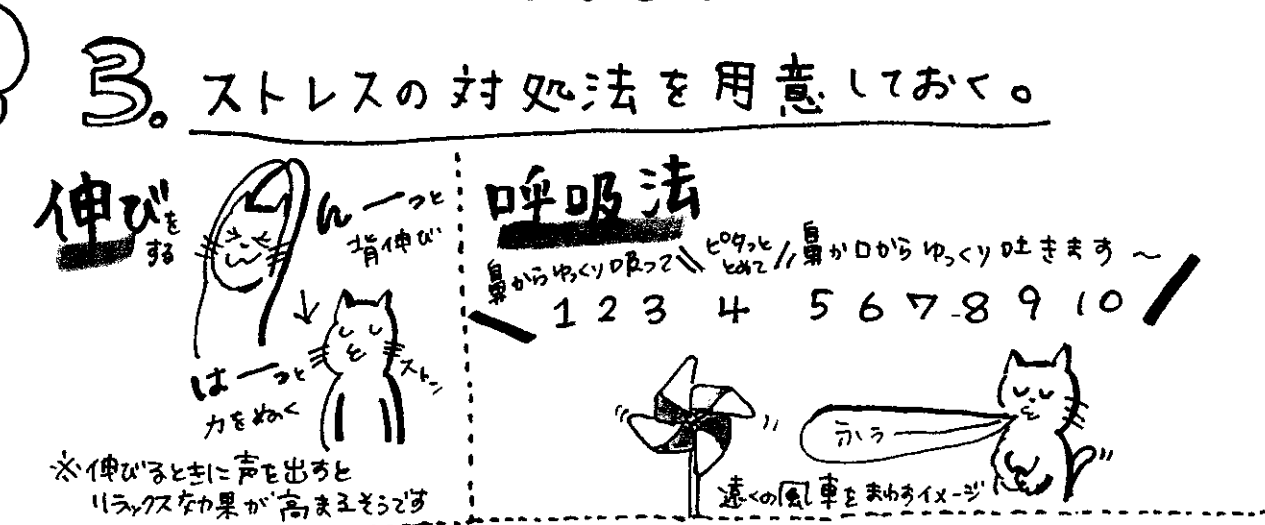 3. ストレスの対処法を用意しておく。
伸びをする
んーっと
背伸び
はーっと
力をぬく
ストン
※伸びるときに声を出すと
リラックス効果が高まるそうです
呼吸法
鼻からゆっくり吸って \\ ピタっと とめて // 鼻か口からゆっくり吐きます〜
1 2 3 4 5 6 7 8 9 10
ふぅー
遠くの風車をまわすイメージ